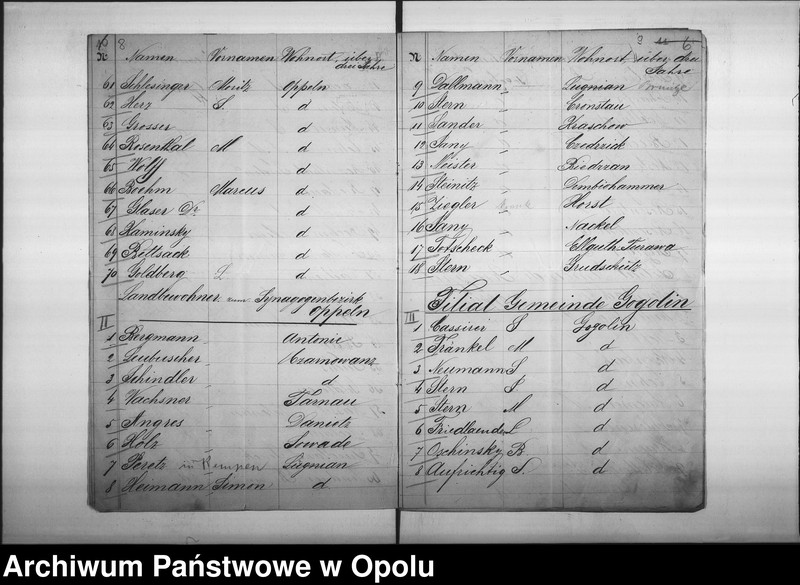 8
N Namen Vornamen Wohnort über drei Jahre
61 Schlesinger Moritz Oppeln
62 Herz S d
63 Grosser d
64 Rosenthal M d
65 Wolff d
66 Boehm Marcus d
67 Glaser Dr d
68 Kaminsky d
69 Bettsack d
70 Goldberg L d
Landbewohner zum Synagogenbezirk
Oppeln
II
1 Bergmann Antonie
2 Leubuscher Czarnowanz
3 Schindler d
4 Wachsner Tarnau
5 Angres Danietz
6 Holz Sowade
7 Peretz in Kempen Lugnian
8 Heimann Simon d
6
N Namen Vornamen Wohnort über drei Jahre
9 Dallmann Lugnian
10 Stern Cronstau
11 Sander Kraschow
12 Sany
13 Meister
14 Steinitz Dembiohammer
15 Ziegler Horst
16 Sany Nackel
17 Torscheck Ellguth Turawa
18 Stern Grudschütz
Filial Gemeinde Gogolin
III
1 Cassirer S Gogolin
2 Fränkel M d
3 Neumann S d
4 Stern S d
5 Stern M d
6 Friedlaender L d
7 Oschinsky B. d
8 Aufrichtig S. d
Archiwum Państwowe w Opolu